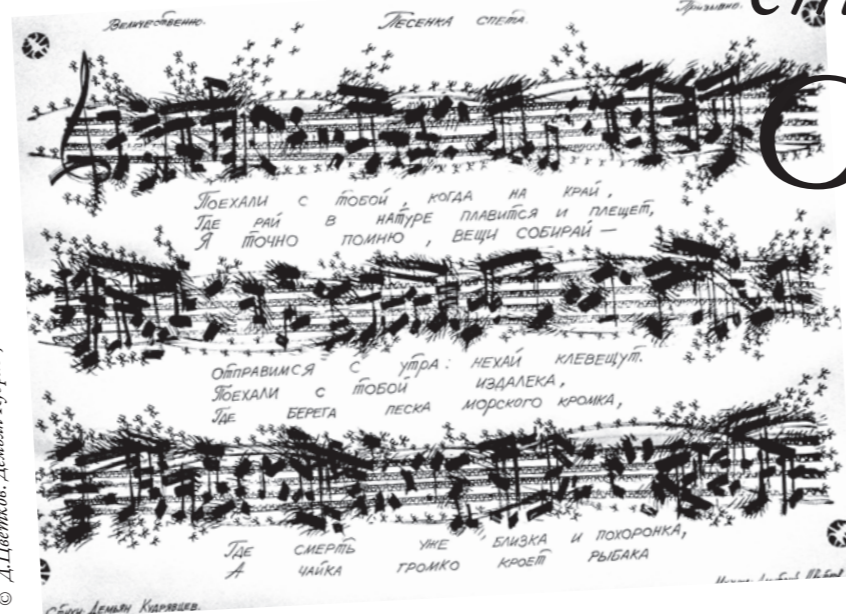 Величественно. Песенка спета. Призывно.
Поехали с тобой, когда на край,
Где рай в натуре плавится и плещет,
Я точно помню, вещи собирай —
отправимся с утра: нехай клевещут.
Поехали с тобой издалека,
Где берега песка морского кромка,
Где смерть уже близка и похоронка,
А чайка громко кроет рыбака
Стихи: Демьян Кудрявцев.
© Д.Цветков. Демьян